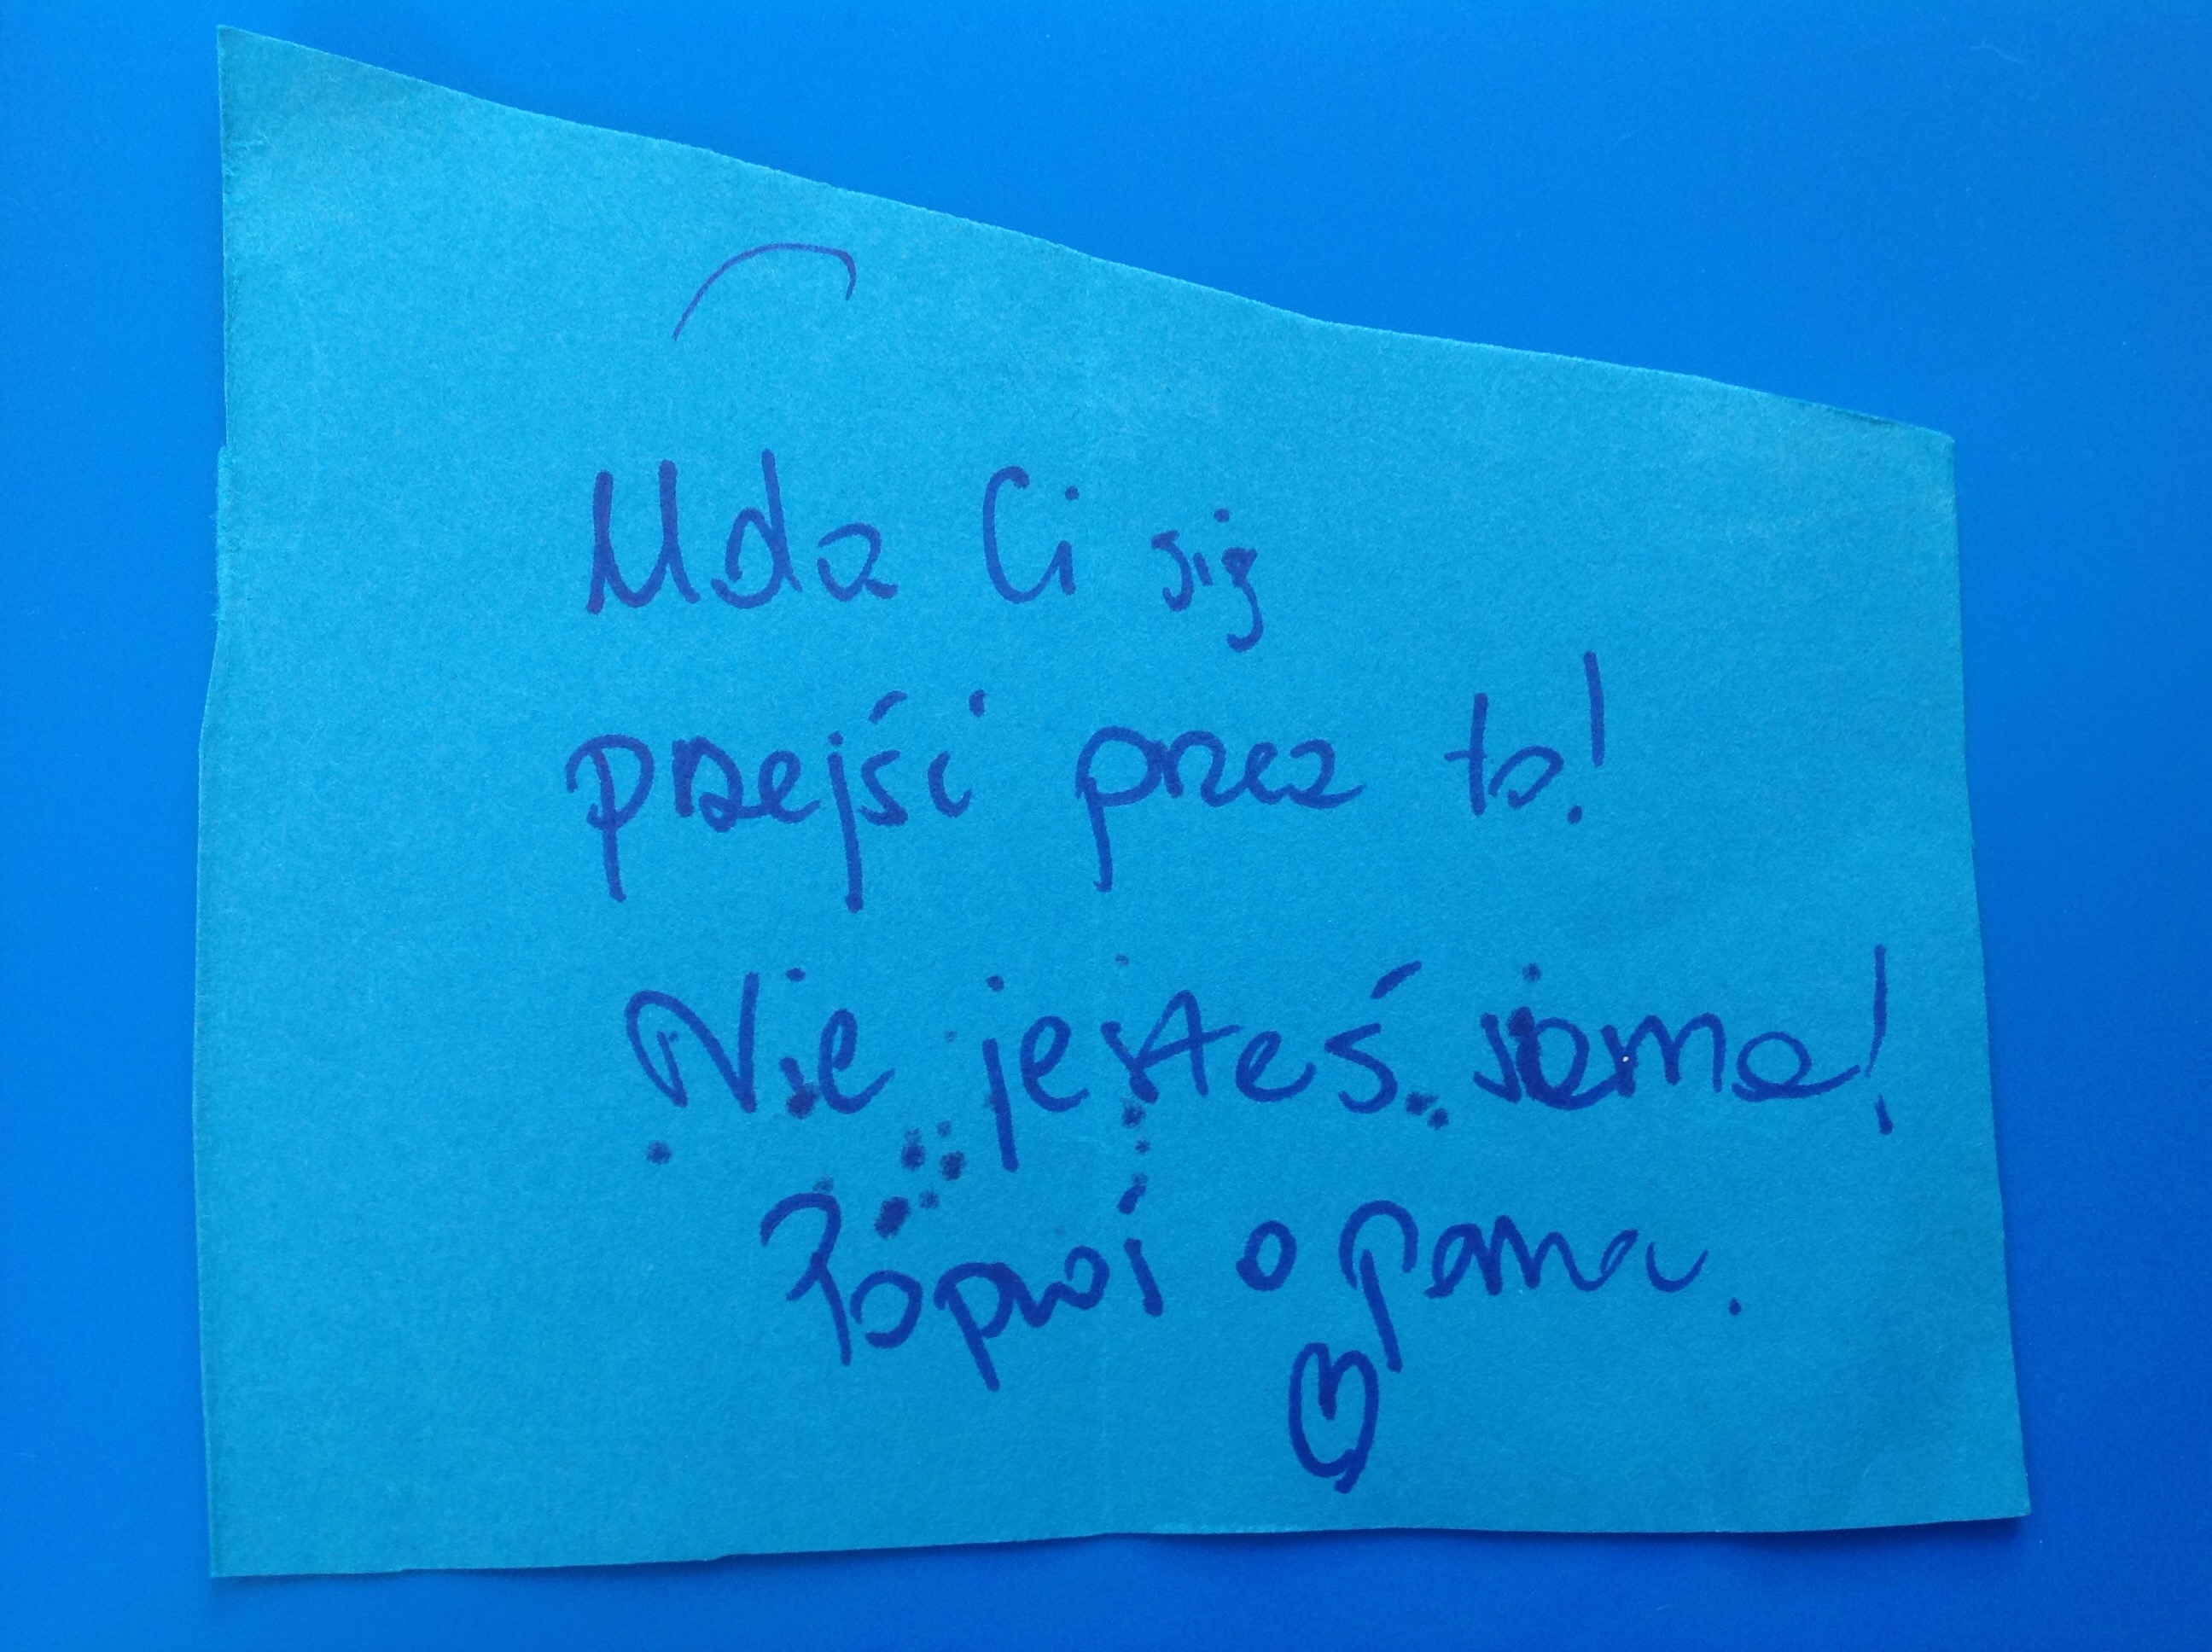 Uda Ci się
przejść przez to!
Nie jesteś sama!
Poproś o pomoc.